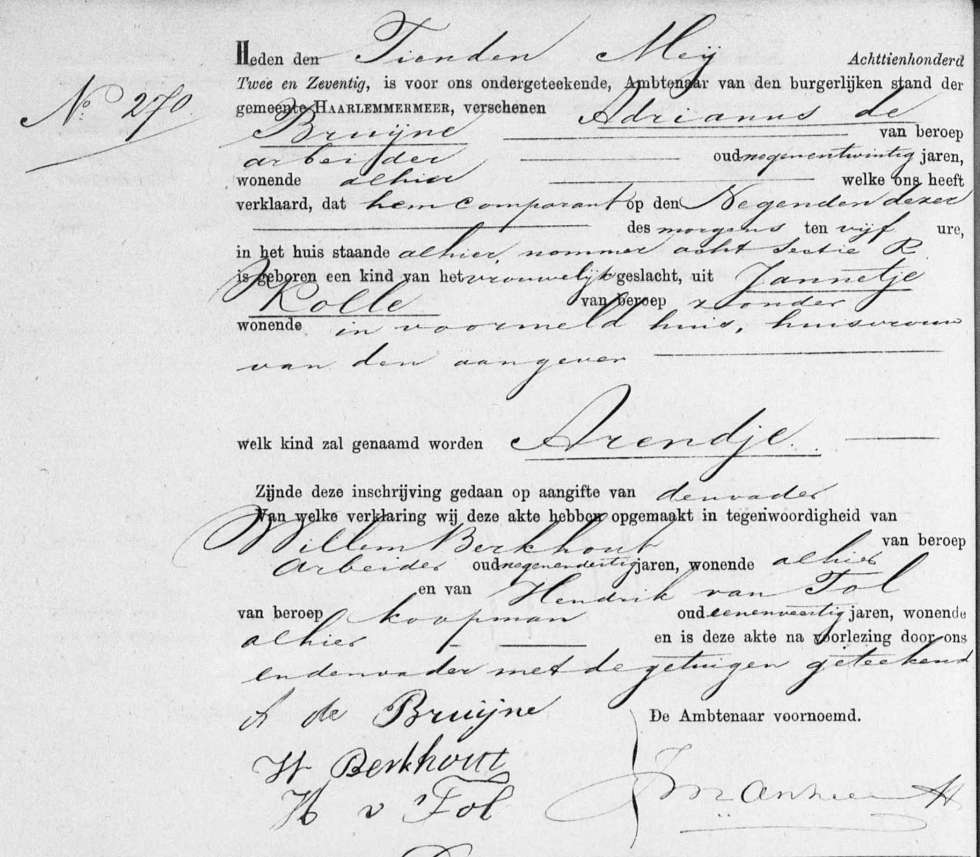 Heden den Tienden Meij Achttienhonderd
Twee en Zeventig, is voor ons ondergeteekende, Ambtenaar van den burgerlijken stand der
No 270.
gemeente HAARLEMMERMEER, verschenen Adrianus de
Bruijne van beroep
arbeider oud negenentwintig jaren,
wonende alhier welke ons heeft
verklaard, dat hem comparant op den Negenden dezer
des morgens ten vijf ure,
in het huis staande alhier, nommer acht sectie R.
is geboren een kind van het vrouwelijk geslacht, uit Jannetje
Kolle van beroep zonder
wonende in voormeld huis, huisvrouw
van den aangever
welk kind zal genaamd worden Arendje.
Zijnde deze inschrijving gedaan op aangifte van den vader
Van welke verklaring wij deze akte hebben opgemaakt in tegenwoordigheid van
Willem Berkhout van beroep
Arbeider oud negenendertig jaren, wonende alhier
en van Hendrik van Tol
van beroep koopman oud eenenveertig jaren, wonende
alhier en is deze akte na voorlezing door ons
en den vader met de getuigen geteekend
A de Bruijne De Ambtenaar voornoemd.
W Berkhout
H v Tol